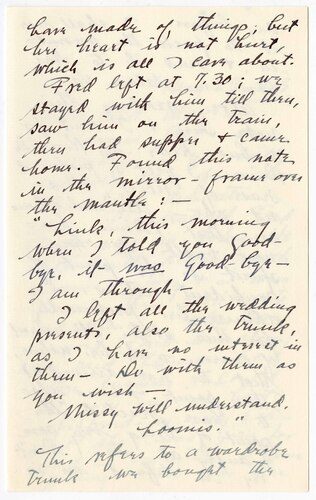 have made of things; but
her heart is not hurt,
which is all I care about.
Fred left at 7.30; we
stayed with him till then,
saw him on the train,
then had supper & came
home. Found this note
in the mirror-frame over
the mantle:—
"Link, this morning
when I told you Good-
bye, it was Good-bye—
I am through—
I left all the wedding
presents, also the trunk,
as I have no interest in
them— Do with them as
you wish—
Missy will understand.
Loomis."
This refers to a wardrobe
trunk we bought the